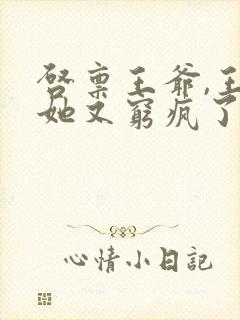 啓稟王爺,王
她又窮瘋了
心情小日記